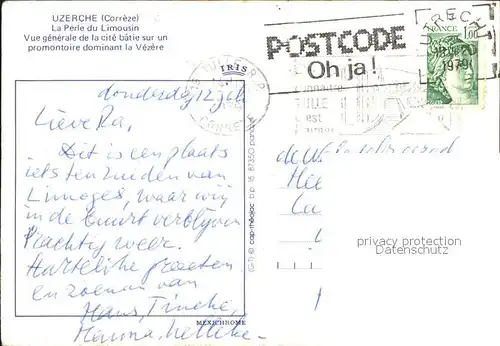 UZERCHE (Corrèze)
La Perle du Limousin
Vue générale de la cité bâtie sur un
promontoire dominant la Vézère
IRIS
POSTCODE
Oh ja!
FRANCE 1,00
1979
donderdag 12 juli
Lieve Ra,
Dit is een plaats
iets ten zuiden van
Limoges, waar wij
in de buurt verblijven
Prachtig weer.
Hartelijke groeten
en zoenen van
Hans, Tineke,
Hanna, Nelleke
MEXICHROME
(G-I) © cap-théojac b.p. 15 87350 panazol
de W
Hee
La
privacy protection
Datenschutz